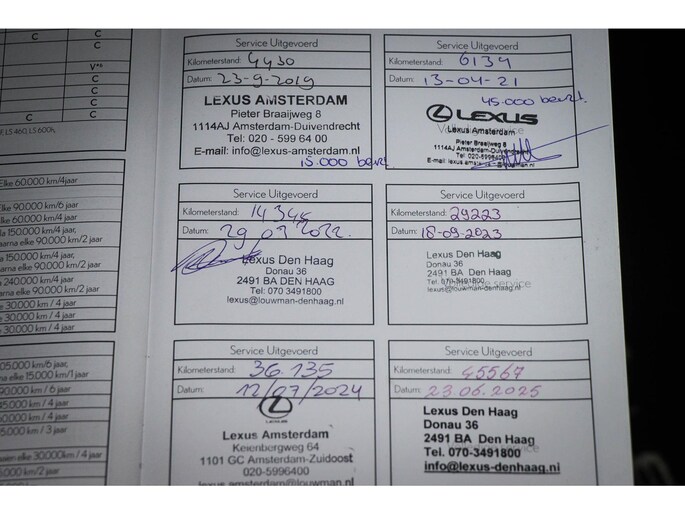 C
C
C
V*⁶
C
C
LS 460, LS 600h,
Elke 60.000 km/4jaar
Elke 90.000 km/6 jaar
elke 60.000 km/4 jaar
150.000 km/4 jaar,
arna elke 90.000 km/2 jaar
a 150.000 km/4 jaar,
elke 90.000 km/2 jaar
240.000 km/4 jaar
arna elke 90.000 km/2 jaar
e 30.000 km / 4 jaar
e 30.000 km / 4 jaar
e 30.000 km / 4 jaar
05.000 km/6 jaar,
na elke 15.000 km/1 jaar
90.000 km / 6 jaar
45.000 km / 4 jaar
60.000 km / 4 jaar
5.000 km / 3 jaar
elke 30.000km / 4 jaar
km/2 jaar
30.000 km / 4 jaar
Service Uitgevoerd
Kilometerstand: 4430
Datum: 23-9-2019
LEXUS AMSTERDAM
Pieter Braaijweg 8
1114AJ Amsterdam-Duivendrecht
Tel: 020 - 599 64 00
E-mail: info@lexus-amsterdam.nl
15.000 beurt
Service Uitgevoerd
Kilometerstand: 6134
Datum: 13-04-21
45.000 beurt
LEXUS
Lexus Amsterdam
Pieter Braaijweg 8
1114AJ Amsterdam-Duivendrecht
Tel 020-5996400
E-mail: lexus
Service Uitgevoerd
Kilometerstand:
Datum: 29 07 2022.
Lexus Den Haag
Donau 36
2491 BA DEN HAAG
Tel: 070 3491800
lexus@louwman-denhaag.nl
Service Uitgevoerd
Kilometerstand: 29223
Datum: 18-09-2023
Lexus Den Haag
Donau 36
2491 BA DEN HAAG
Tel: 070-3491800
lexus@louwman-denhaag.nl
Service Uitgevoerd
Kilometerstand: 36.135
Datum: 12/07/2024
LEXUS
Lexus Amsterdam
Keienbergweg 64
1101 GC Amsterdam-Zuidoost
020-5996400
lexus.amsterdam@louwman.nl
Service Uitgevoerd
Kilometerstand: 45567
Datum: 23.06.2025
Lexus Den Haag
Donau 36
2491 BA Den Haag
Tel. 070-3491800
info@lexus-denhaag.nl